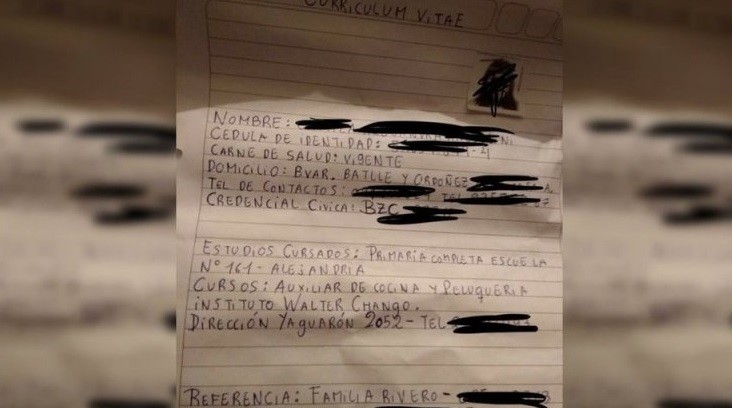 CURRICULUM VITAE
NOMBRE:
CEDULA DE IDENTIDAD:
CARNE DE SALUD: VIGENTE
DOMICILIO: BVAR. BATLLE Y ORDOÑEZ
TEL DE CONTACTOS: Y TEL
CREDENCIAL CIVICA: BZC
ESTUDIOS CURSADOS: PRIMARIA COMPLETA ESCUELA
Nº 161 - ALEJANDRIA
CURSOS: AUXILIAR DE COCINA Y PELUQUERIA
INSTITUTO WALTER CHANGO.
DIRECCIÓN YAGUARÓN 2052 - TEL
REFERENCIA: FAMILIA RIVERO -